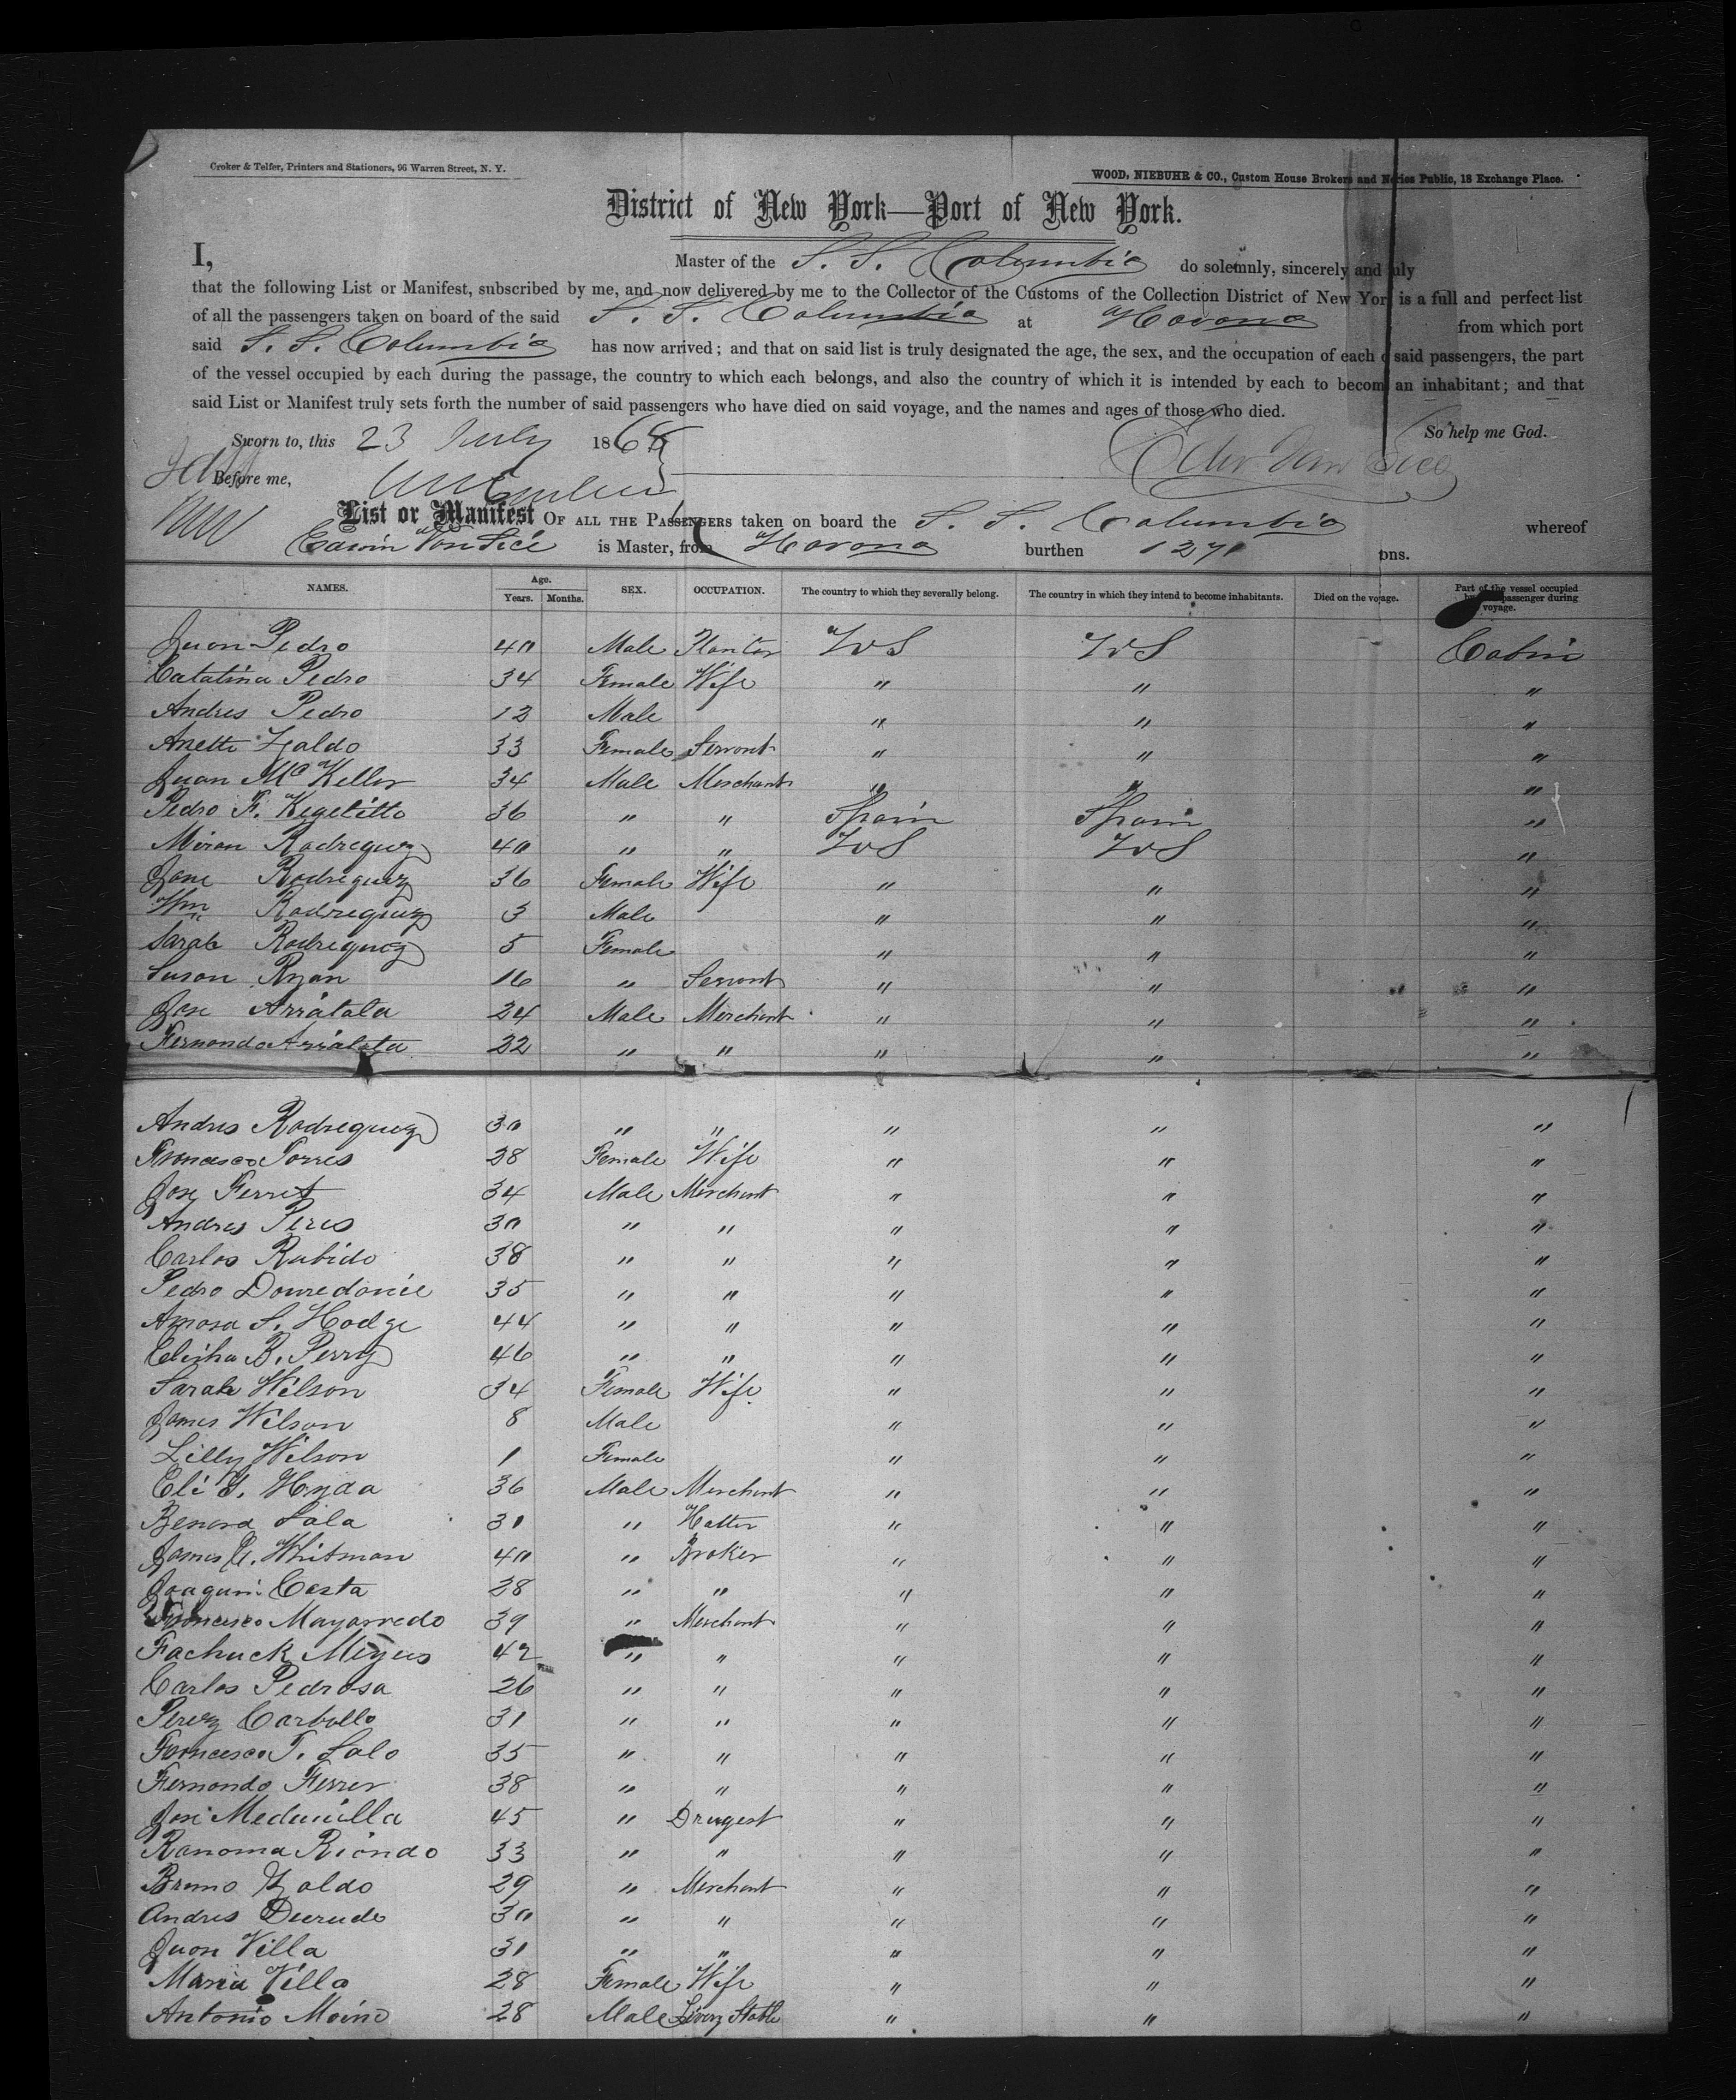 Croker & Telfer, Printers and Stationers, 96 Warren Street, N. Y.
WOOD, NIEBUHR & CO., Custom House Brokers and Notaries Public, 18 Exchange Place.
District of New York—Port of New York.
I, Master of the S. S. Columbia do solemnly, sincerely and truly
that the following List or Manifest, subscribed by me, and now delivered by me to the Collector of the Customs of the Collection District of New York is a full and perfect list
of all the passengers taken on board of the said S. S. Columbia at Havana from which port
said S. S. Columbia has now arrived; and that on said list is truly designated the age, the sex, and the occupation of each of said passengers, the part
of the vessel occupied by each during the passage, the country to which each belongs, and also the country of which it is intended by each to become an inhabitant; and that
said List or Manifest truly sets forth the number of said passengers who have died on said voyage, and the names and ages of those who died.
Sworn to, this 23 July 186 So help me God.
Before me,
List or Manifest OF ALL THE PASSENGERS taken on board the S. S. Columbia whereof
Edwin Van Sice is Master, from Havana burthen 1271 tons.
NAMES. Age. Years. Months. SEX. OCCUPATION. The country to which they severally belong. The country in which they intend to become inhabitants. Died on the voyage. Part of the vessel occupied by passenger during voyage.
Juan Pedro 40 Male Planter US US Cabin
Catalina Pedro 34 Female Wife " " "
Andres Pedro 12 Male " " "
Anette Zaldo 33 Female Servant " " "
Juan McKeller 34 Male Merchant " " "
Pedro F. Kegelitto 36 " " Spain Spain "
Miran Rodreguez 40 " " US US "
Jane Rodreguez 36 Female Wife " " "
Wm Rodreguez 3 Male " " "
Sarah Rodreguez 5 Female " " "
Susan Ryan 16 " Servant " " "
Jose Arriatala 24 Male Merchant " " "
Fernando Arialata 22 " " " " "
Andres Rodreguez 30 " " " " "
Francesca Torres 28 Female Wife " " "
Jose Ferret 34 Male Merchant " " "
Andres Peres 30 " " " " "
Carlos Rubido 38 " " " " "
Pedro 35 " " " " "
Amosa S. Hodge 44 " " " " "
Elisha B. Perry 46 " " " " "
Sarah Wilson 34 Female Wife " " "
James Wilson 8 Male " " "
Lilly Wilson 1 Female " " "
Eli Hyda 36 Male Merchant " " "
Benora Sala 30 " Hatter " " "
James C. Whitman 40 " Broker " " "
Joaquin Costa 28 " " " " "
Francesco Mayorredo 39 " Merchant " " "
Fachuck Meyus 42 " " " " "
Carlos Pedrosa 26 " " " " "
Perez Carballo 31 " " " " "
Francesco T. Salo 35 " " " " "
Fernando Ferrer 38 " " " " "
Jose Medinilla 45 " Drugest " " "
Ranoma Riondo 33 " " " " "
Bruno Zaldo 29 " Merchant " " "
Andres 30 " " " " "
Juan Villa 31 " " " " "
Maria Villa 28 Female Wife " " "
Antonio Moino 28 Male Livery Stable " " "